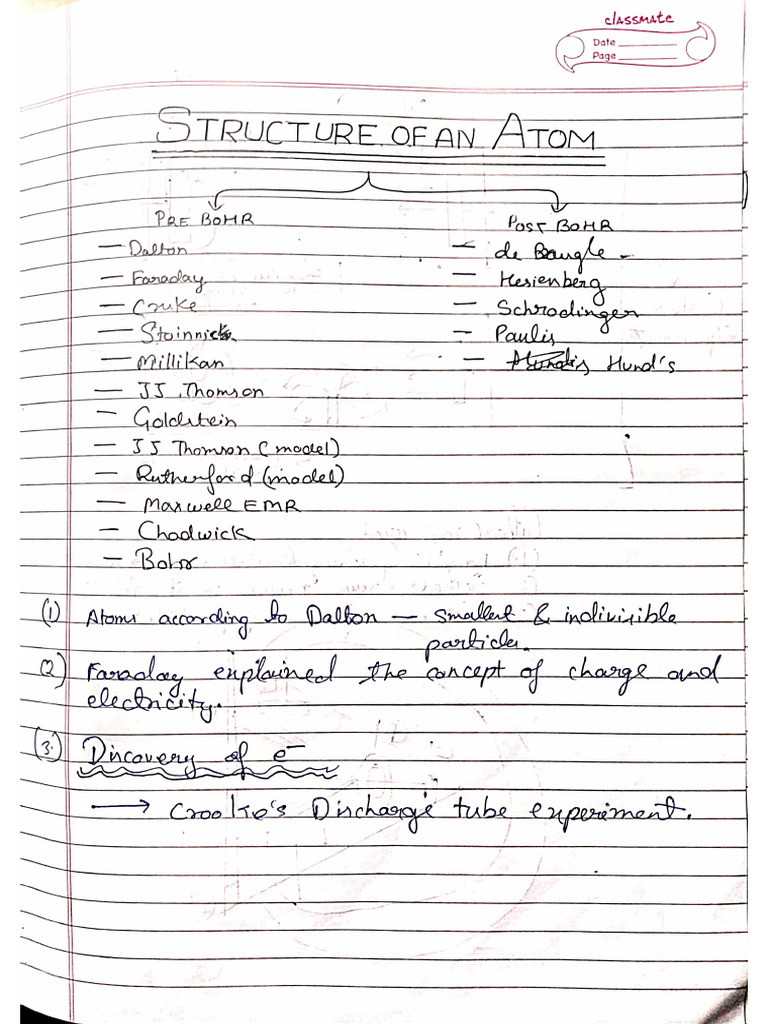 classmate
Date
Page
STRUCTURE OF AN ATOM
PRE BOHR
- Dalton
- Faraday
- Cruke
- Stoinnicks
- Millikan
- JJ Thomson
- Goldstein
- JJ Thomson (model)
- Rutherford (model)
- Maxwell EMR
- Chadwick
- Bohr
POST BOHR
- de Baugle
- Hesienberg
- Schrodinger
- Paulis
- Hund's
(1) Atoms according to Dalton — smallest & indivisible
particle.
(2) Faraday explained the concept of charge and
electricity.
(3) Discovery of e⁻
→ Crooke's Discharge tube experiment.